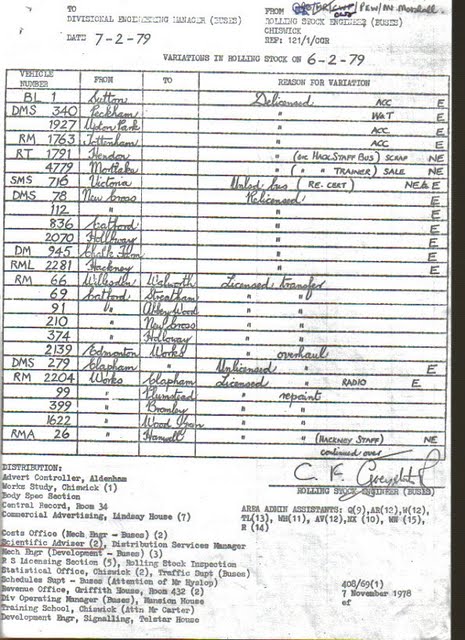 TO FROM PEW/Mr. Marshall
DIVISIONAL ENGINEERING MANAGER (BUSES) ROLLING STOCK ENGINEER (BUSES)
CHISWICK
DATE 7-2-79 REF: 121/1/CGR
VARIATIONS IN ROLLING STOCK ON 6-2-79
VEHICLE NUMBER FROM TO REASON FOR VARIATION
BL 1 Sutton Delicensed ACC E
DMS 340 Peckham " W&T E
1927 Upton Park " ACC E
RM 1763 Tottenham " ACC E
RT 1791 Hendon " (EX HACK. STAFF BUS) SCRAP NE
4779 Mortlake " ( " " TRAINER) SALE NE
SMS 716 Victoria Unlsd bus (RE. CERT) NE & E
DMS 78 New Cross Relicensed E
112 " " E
836 Catford " E
2070 Holloway " E
DM 945 Chalk Farm " E
RML 2281 Hackney " E
RM 66 Willesden Walworth Licensed transfer
69 Catford Streatham " "
91 " Abbey Wood " "
210 " New Cross " "
374 " Holloway " "
2139 Edmonton Works " overhaul
DMS 279 Clapham " Unlicensed " E
RM 2204 Works Clapham Licensed " RADIO E
99 " Plumstead " repaint
399 " Bromley " "
1622 " Wood Green " "
RMA 26 " Hanwell " " (HACKNEY STAFF) NE
continued over
ROLLING STOCK ENGINEER (BUSES)
DISTRIBUTION:
Advert Controller, Aldenham
Works Study, Chiswick (1)
Body Spec Section
Central Record, Room 34
Commercial Advertising, Lindsay House (7)
AREA ADMIN ASSISTANTS: Q(9), AR(12), W(12),
TL(13), WH(11), AV(12), NX (10), WN (15),
R (14)
Costs Office (Mech Engr - Buses) (2)
Scientific Adviser (2), Distribution Services Manager
Mech Engr (Development - Buses) (3)
R S Licensing Section (5), Rolling Stock Inspection
Statistical Office, Chiswick (2), Traffic Supt (Buses)
Schedules Supt - Buses (Attention of Mr Hyslop)
Revenue Office, Griffith House, Room 432 (2)
Div Operating Manager (Buses), Mansion House
Training School, Chiswick (Attn Mr Carter)
Development Engr, Signalling, Telstar House
408/69(1)
7 November 1978
ef